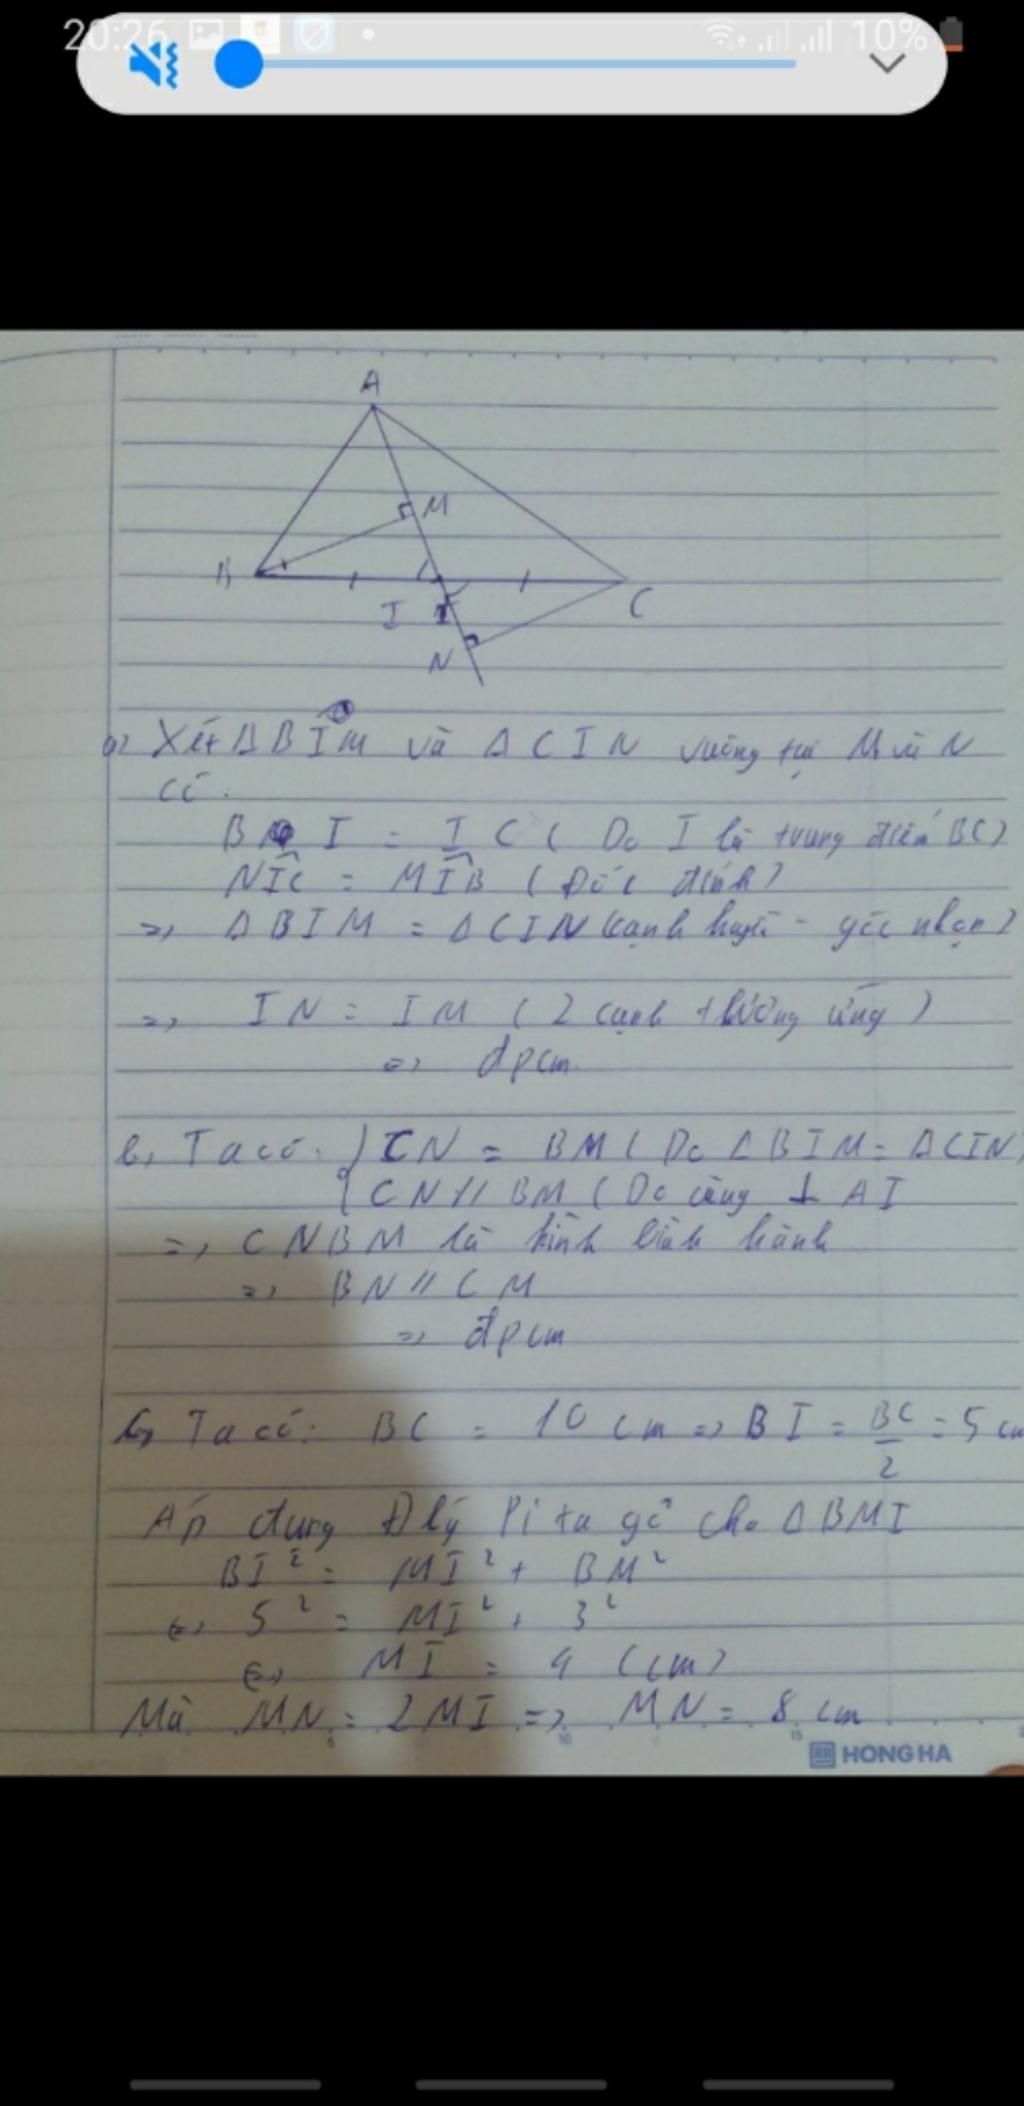 20:26
10%
A
M
B
I
C
N
a) Xét ΔBIM và ΔCIN vuông tại M và N
có:
BI = IC (Do I là trung điểm BC)
NIC = MIB (Đối đỉnh)
=> ΔBIM = ΔCIN (cạnh huyền - góc nhọn)
=> IN = IM (2 cạnh tương ứng)
=> đpcm
b, Ta có: { CN = BM (Do ΔBIM = ΔCIN)
CN // BM (Do cùng ⊥ AI
=> CNBM là hình bình hành
=> BN // CM
=> đpcm
c, Ta có: BC = 10 cm => BI = BC/2 = 5 cm
Áp dụng Đlý Pitago cho ΔBMI
BI² = MI² + BM²
<=> 5² = MI² + 3²
<=> MI = 4 (cm)
Mà MN = 2MI => MN = 8 cm
5 10 15
HONG HA